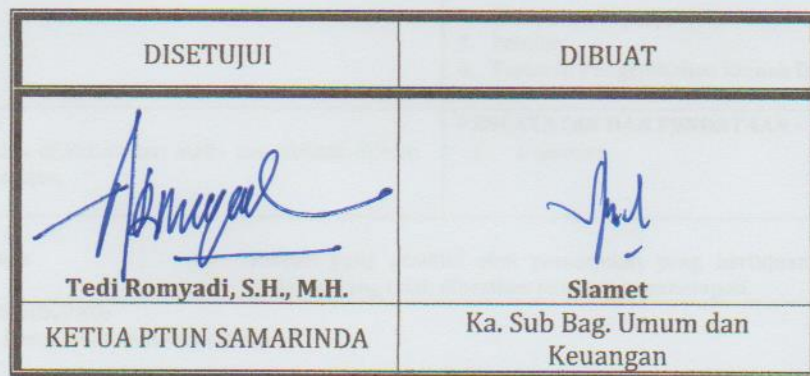 DISETUJUI
DIBUAT
Tedi Romyadi, S.H., M.H.
Slamet
KETUA PTUN SAMARINDA
Ka. Sub Bag. Umum dan
Keuangan